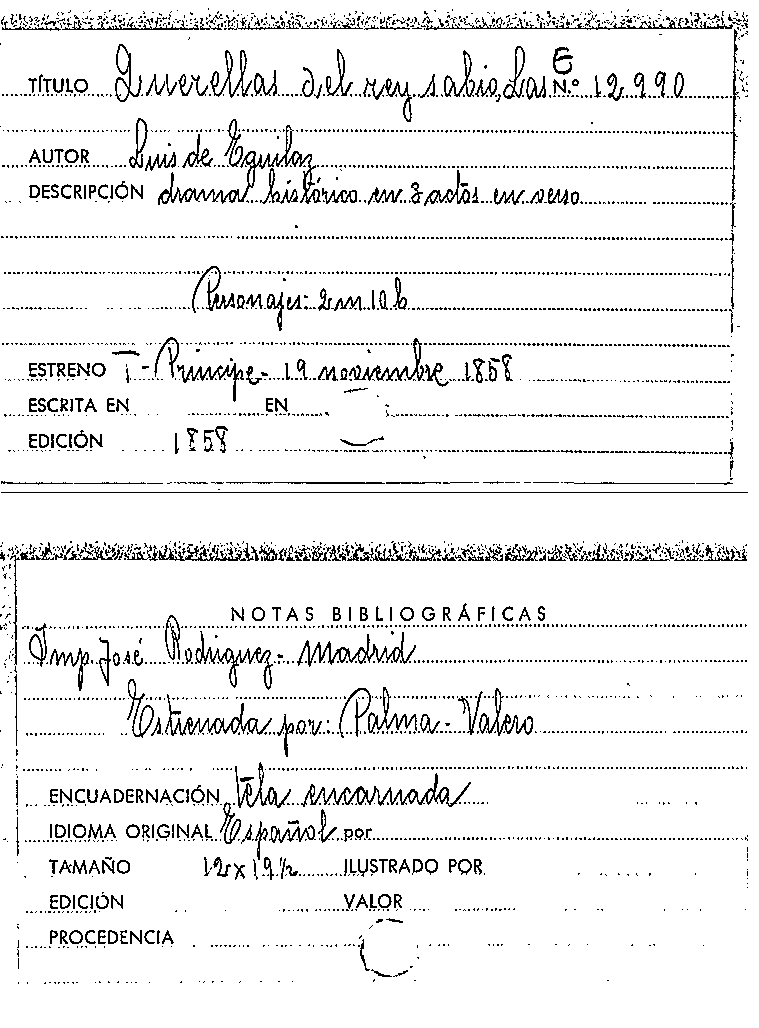 TÍTULO Querellas del rey sabio, Las E N.º 12.990
AUTOR Luis de Eguilaz
DESCRIPCIÓN drama histórico en 3 actos en verso
Personajes: 2 m 10 h
ESTRENO T - Príncipe - 19 noviembre 1858
ESCRITA EN EN
EDICIÓN 1858
NOTAS BIBLIOGRÁFICAS
Imp. José Rodriguez - Madrid
Estrenada por: Palma - Valero
ENCUADERNACIÓN tela encarnada
IDIOMA ORIGINAL Español por
TAMAÑO 12 x 19 ½ ILUSTRADO POR
EDICIÓN VALOR
PROCEDENCIA